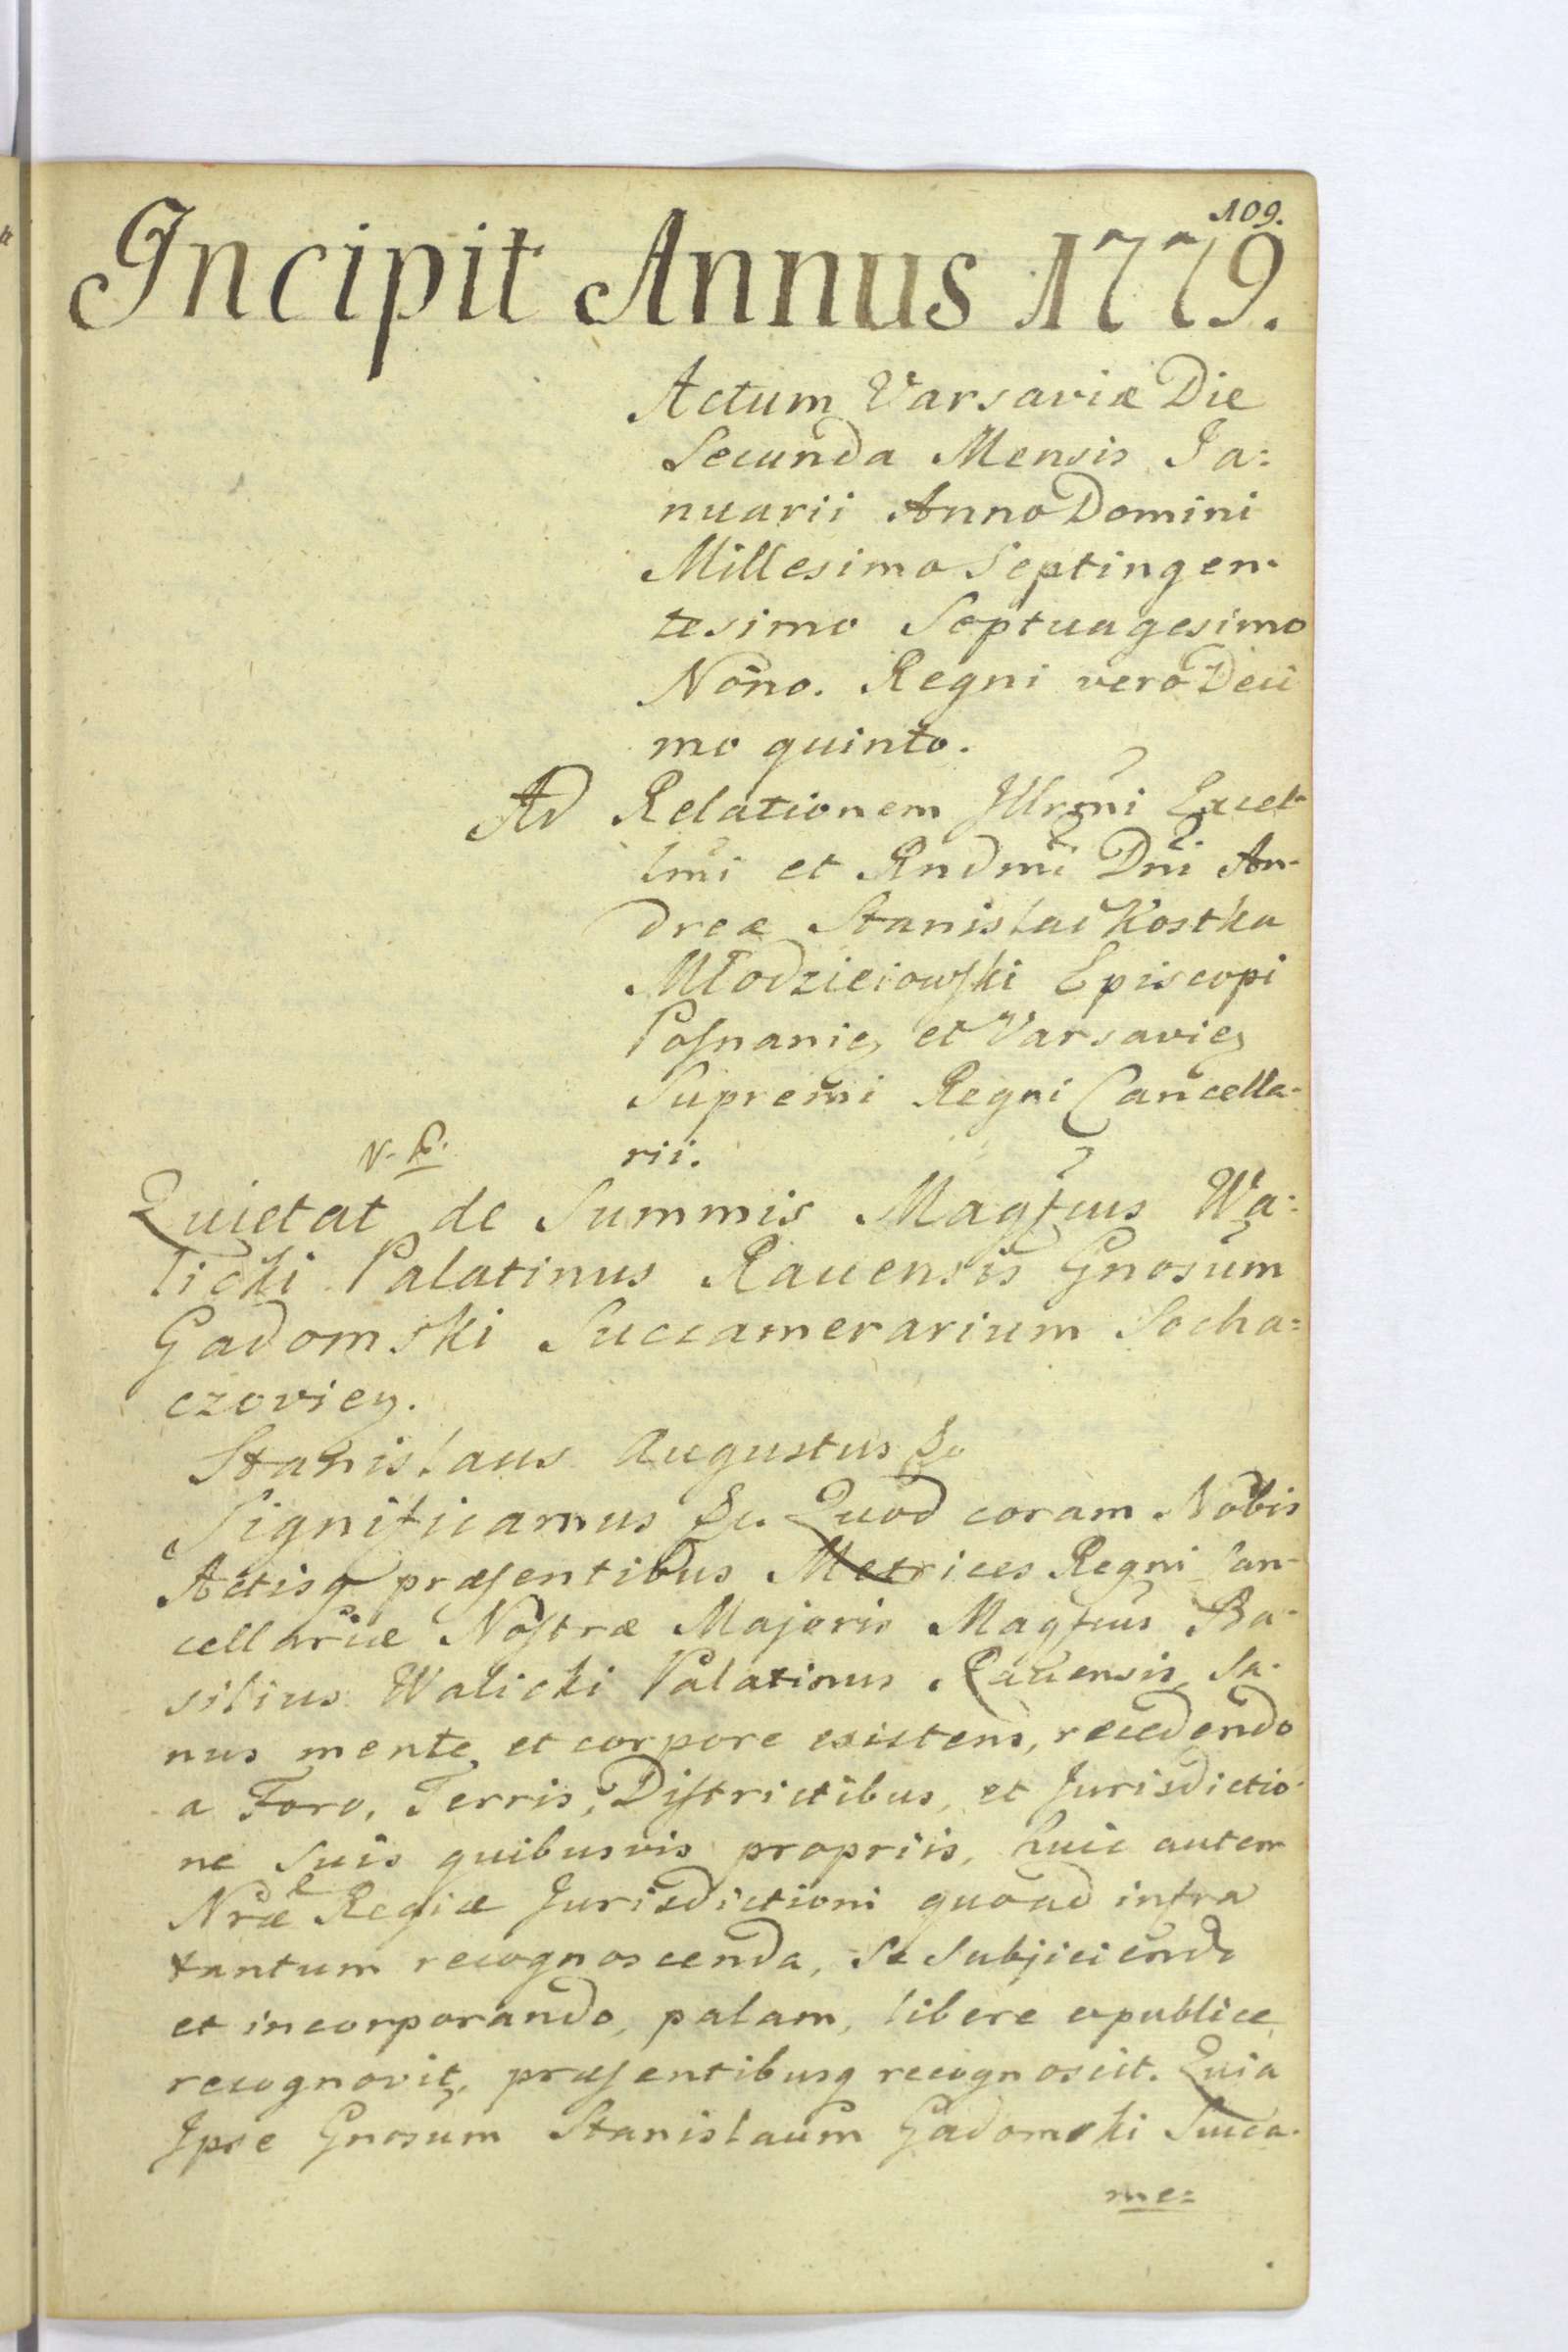 109.
Incipit Annus 1779.
Actum Varsaviæ Die
Secunda Mensis Ja:
nuarii Anno Domini
Millesimo Septingen-
tesimo Septuagesimo
Nono. Regni vero Deci
mo quinto.
Ad Relationem Illrmi Excel-
lmi et Rndmi Dni An-
dreæ Stanislai Kostka
Młodzieiowski Episcopi
Posnanien et Varsavien
Supremi Regni Cancella-
rii.
Quietat de Summis Magfcus Wa:
licki Palatinus Ravensis Gnosum
Gadomski Succamerarium Socha=
czovien.
Stanislaus Augustus &c
Significamus &c. Quod coram Nobis
Actisq præsentibus Metrices Regni Can-
cellariæ Nostræ Majoris Magfcus Ba-
silius Walicki Palatinus Ravensis, Sa-
nus mente et corpore existens, recedendo
a Foro, Terris, Districtibus, et Jurisdictio-
ne Suis quibusvis propriis, huic autem
Nræ Regiæ Jurisdictioni quoad infra
tantum recognoscenda, Se Subjiciendo
et incorporando, palam, libere ac publice
recognovit, præsentibusq recognoscit. Quia
Ipse Gnosum Stanislaum Gadomski Succa-
me=